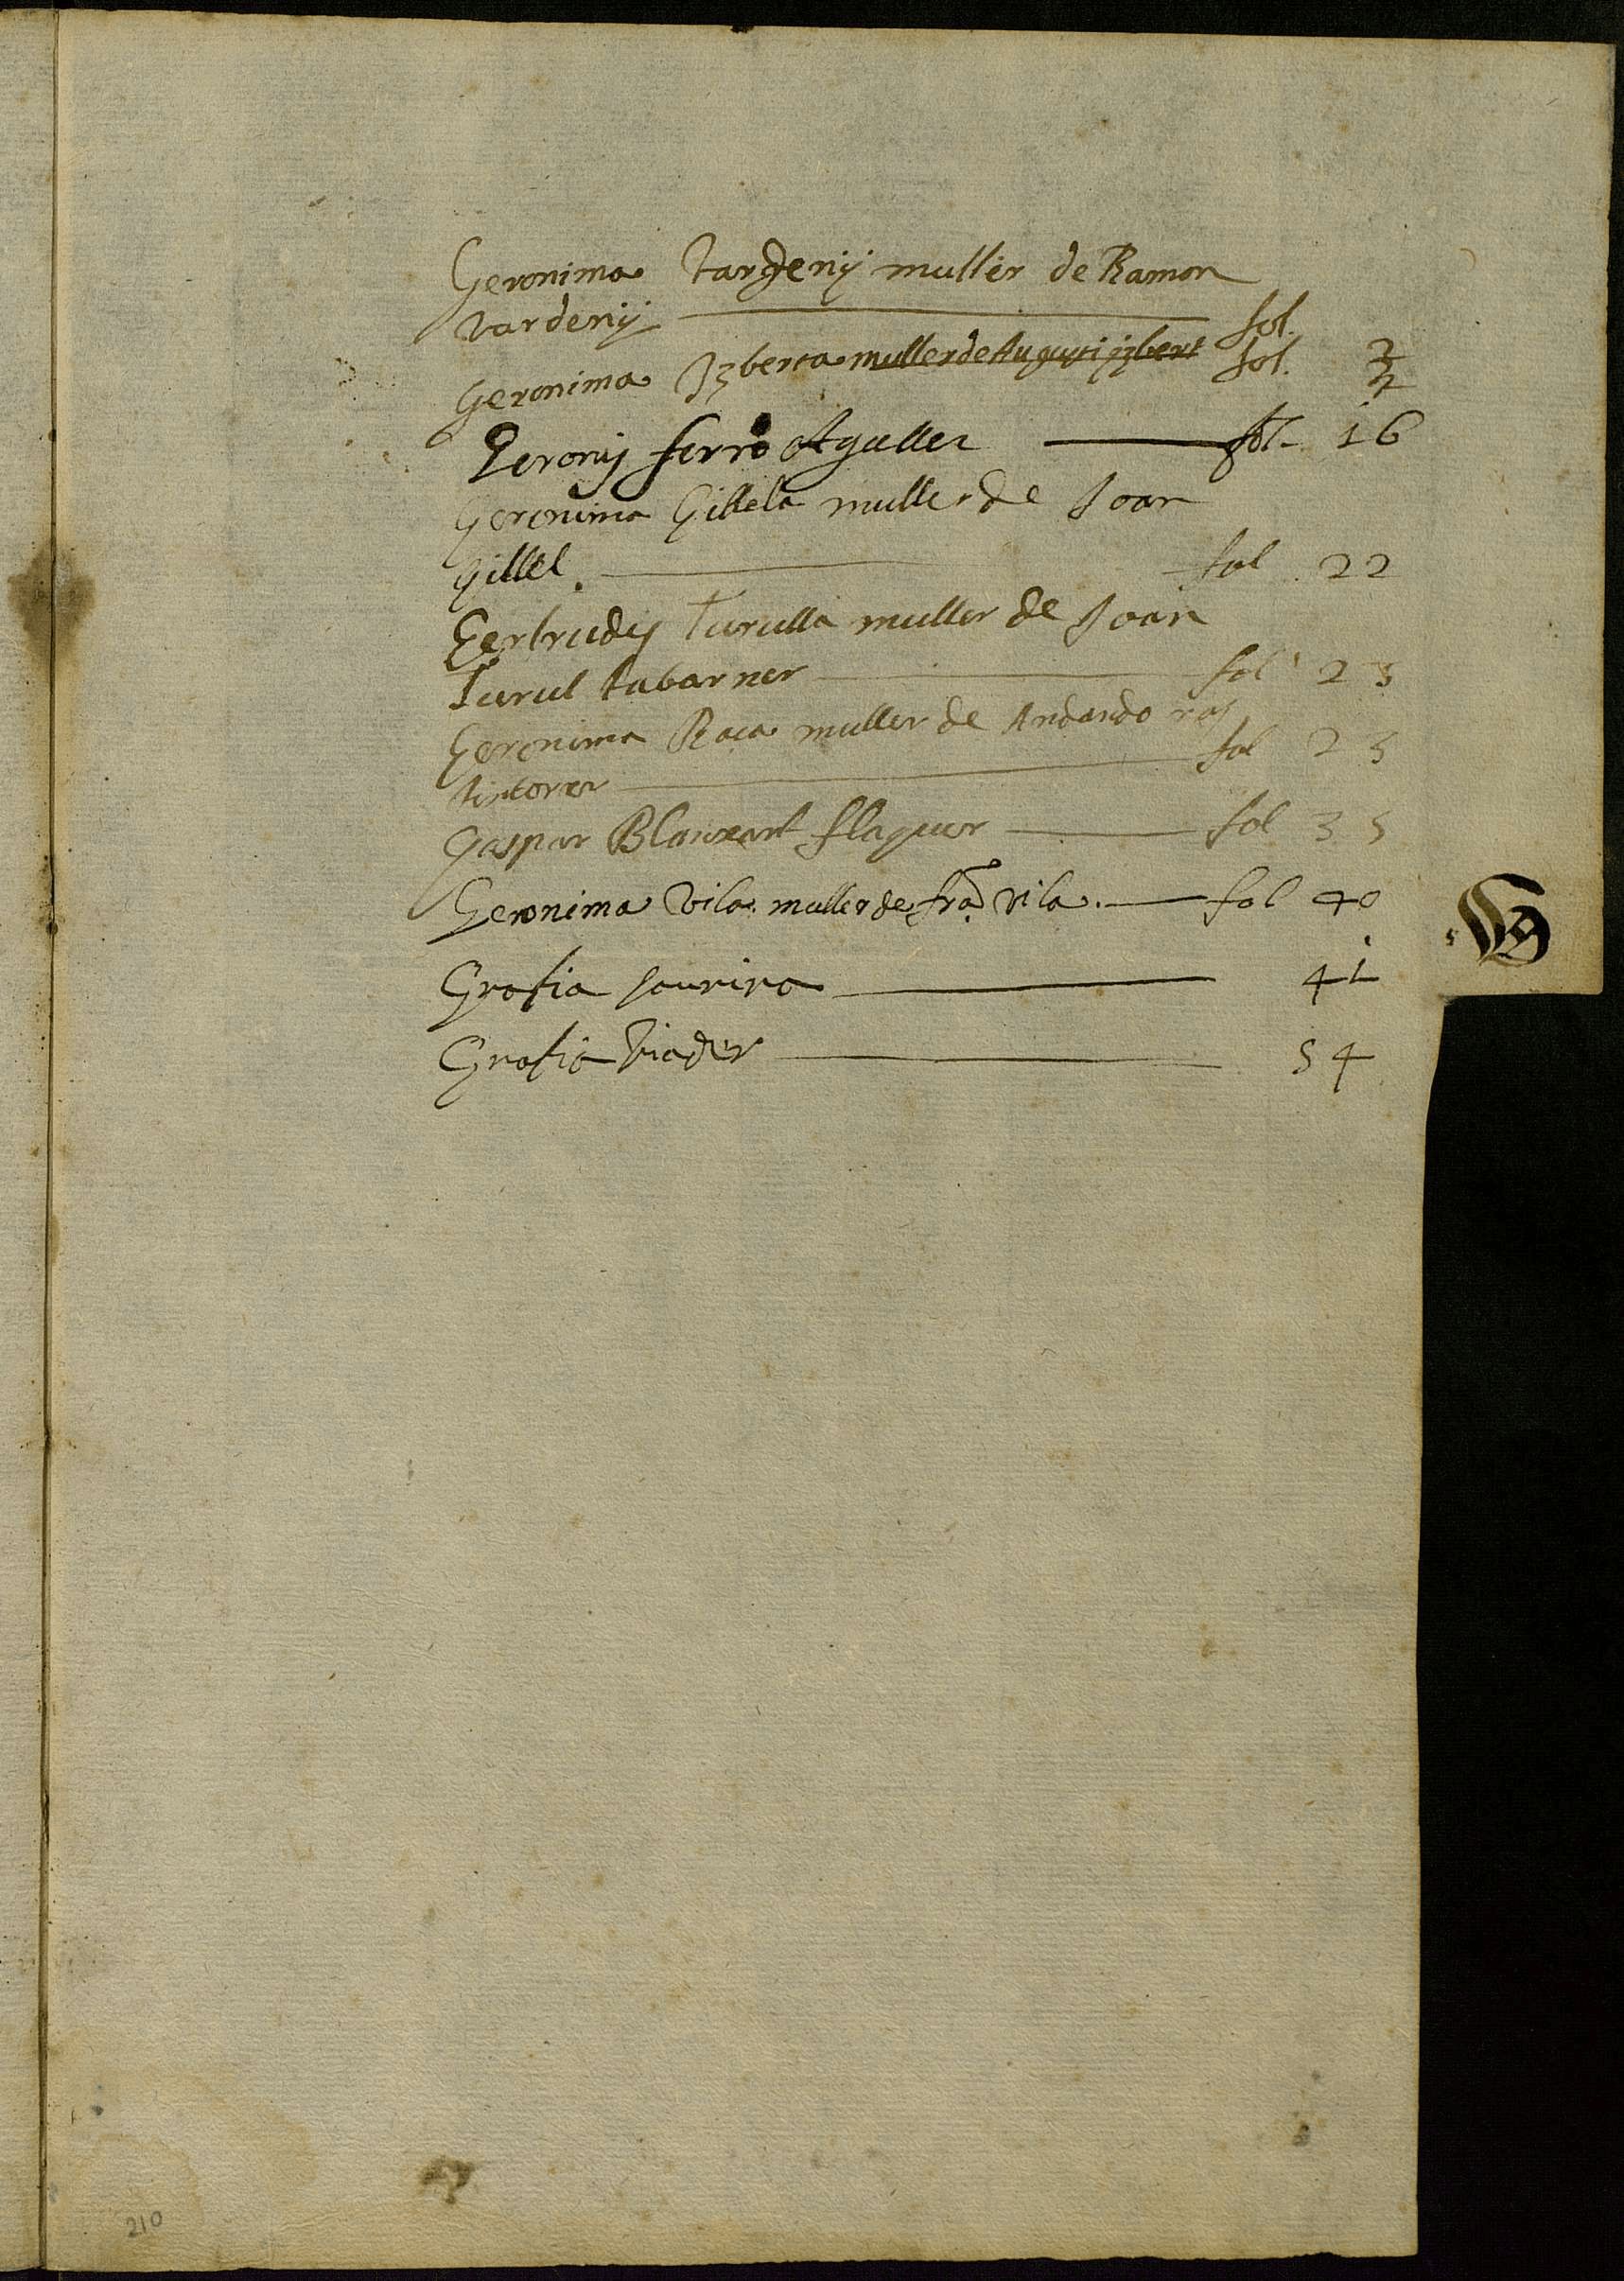 Geronima Tardenij muller de Ramon
Tardenij fol. 2
Geronima Izberta muller de Augusti izbert fol. 2
Gerony ferro Aguller fol- 16
Geronima Gillela muller de Joan
gillel. fol 22
Gertrudis Turulla muller de Joan
Turul tabarner fol 23
Geronima Raca muller de
tintorer fol 25
Gaspar Blanxart flaquer fol 35
Geronima Vila muller de fra.ͨᵒ Vila. fol 40
Grasia sourira 41
Grasia Viader 54
G
210